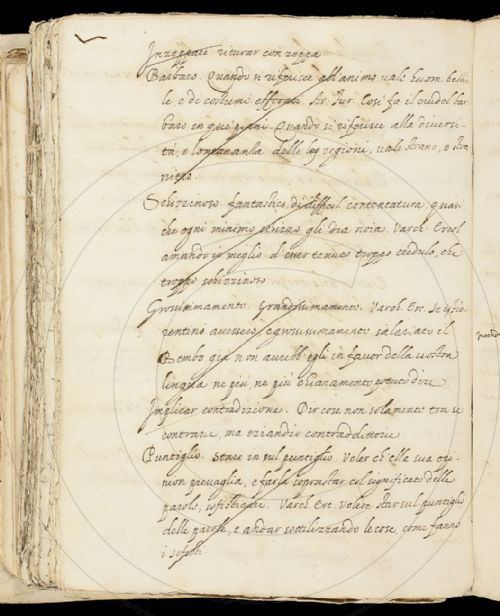 Inzeppare riturar con zeppa
Barbaro. Quando si riferisce all'animo vale huom besti-
le e di costumi efferati. Ar. Fur. Così fa il crudel bar-
baro in que' piani. Quando si riferisce alla diversi-
tà, e lontananza delle regioni, vale strano, e stra
niero
Schizzinoso fantastico di difficil contentatura, qua-
che ogni minimo schizzo gli dia noia. Varch. Ercol
amando io meglio d'esser tenuto troppo credulo, che
troppo schizzinoso
Grossimamente. Grandissimamente. Varch. Erc. Se i fio-
rentini avessero grossissimamente salariato il
Bembo già non avrebb' egli in favor della vostra
lingua ne più, ne più chiaramente potuto dire
Implicar contradizione. Dir cose non solamente tra se
contrarie, ma eziandio contraddittorie
Puntiglio. Stare in sul puntiglio. Voler ch' ella sua opi-
nion prevaglia, e farla soprastar col significato delle
parole, sofisticare. Varch. Erc. volere star sul puntiglio
delle parole, e andar sottilizzando le cose, come fanno
i sofisti